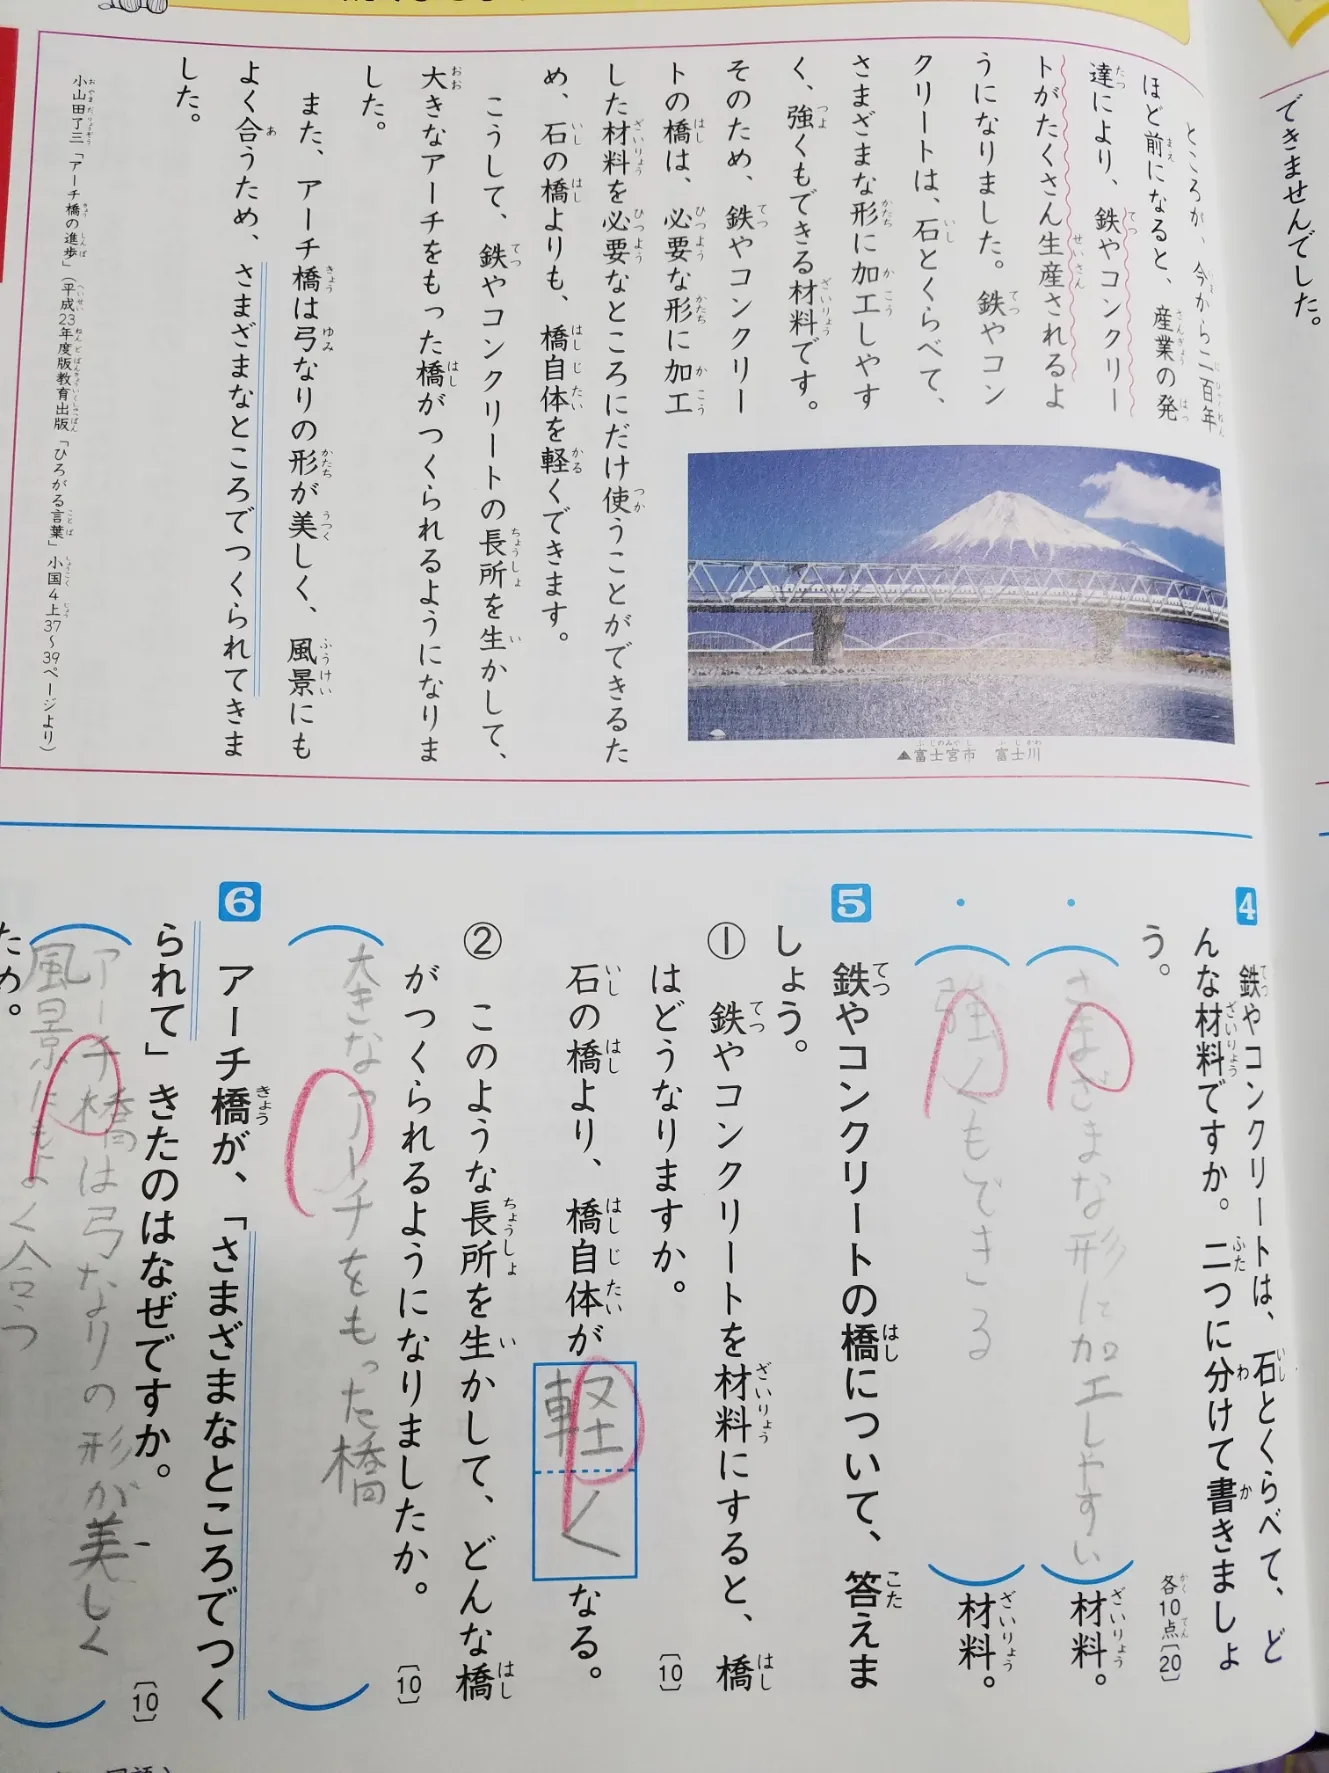 できませんでした。
ところが、今から二百年
ほど前になると、産業の発
達により、鉄やコンクリー
トがたくさん生産されるよ
うになりました。鉄やコン
クリートは、石とくらべて、
さまざまな形に加工しやす
く、強くもできる材料です。
そのため、鉄やコンクリー
トの橋は、必要な形に加工
した材料を必要なところにだけ使うことができるた
め、石の橋よりも、橋自体を軽くできます。
こうして、鉄やコンクリートの長所を生かして、
大きなアーチをもった橋がつくられるようになりま
した。
また、アーチ橋は弓なりの形が美しく、風景にも
よく合うため、さまざまなところでつくられてきま
した。
小山田了三「アーチ橋の進歩」(平成23年度版教育出版「ひろがる言葉」小国4上37〜39ページより)
▲富士宮市 富士川
4 鉄やコンクリートは、石とくらべて、ど
んな材料ですか。二つに分けて書きましょ
う。
各10点〔20〕
・(さまざまな形に加工しやすい)材料。
・(強くもできる)材料。
5 鉄やコンクリートの橋について、答えま
しょう。
① 鉄やコンクリートを材料にすると、橋
はどうなりますか。
〔10〕
石の橋より、橋自体が軽くなる。
② このような長所を生かして、どんな橋
がつくられるようになりましたか。
〔10〕
(大きなアーチをもった橋)
6 アーチ橋が、「さまざまなところでつく
られて」きたのはなぜですか。
〔10〕
(アーチ橋は弓なりの形が美しく
風景にもよく合う
ため。